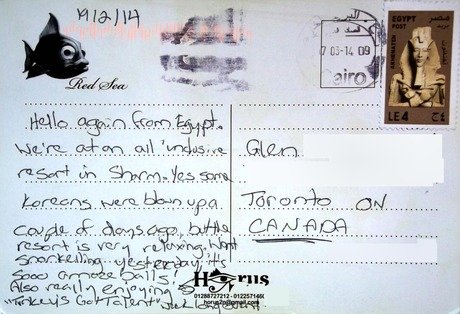 19/2/14
Red Sea
Hello again from Egypt.
We're at an all inclusive
resort in Sharm. Yes some
Koreans were blown up a
couple of days ago, but the
resort is very relaxing. Went
snorkelling yesterday, it's
sooo amaze balls!
Also really enjoying
"Turkey's Got Talent"
Horus
horus7n@gmail.com
7 03-14 09
airo
EGYPT مصر
POST بريد
AKHENATEN
LE 4
Glen
Toronto ON
CANADA